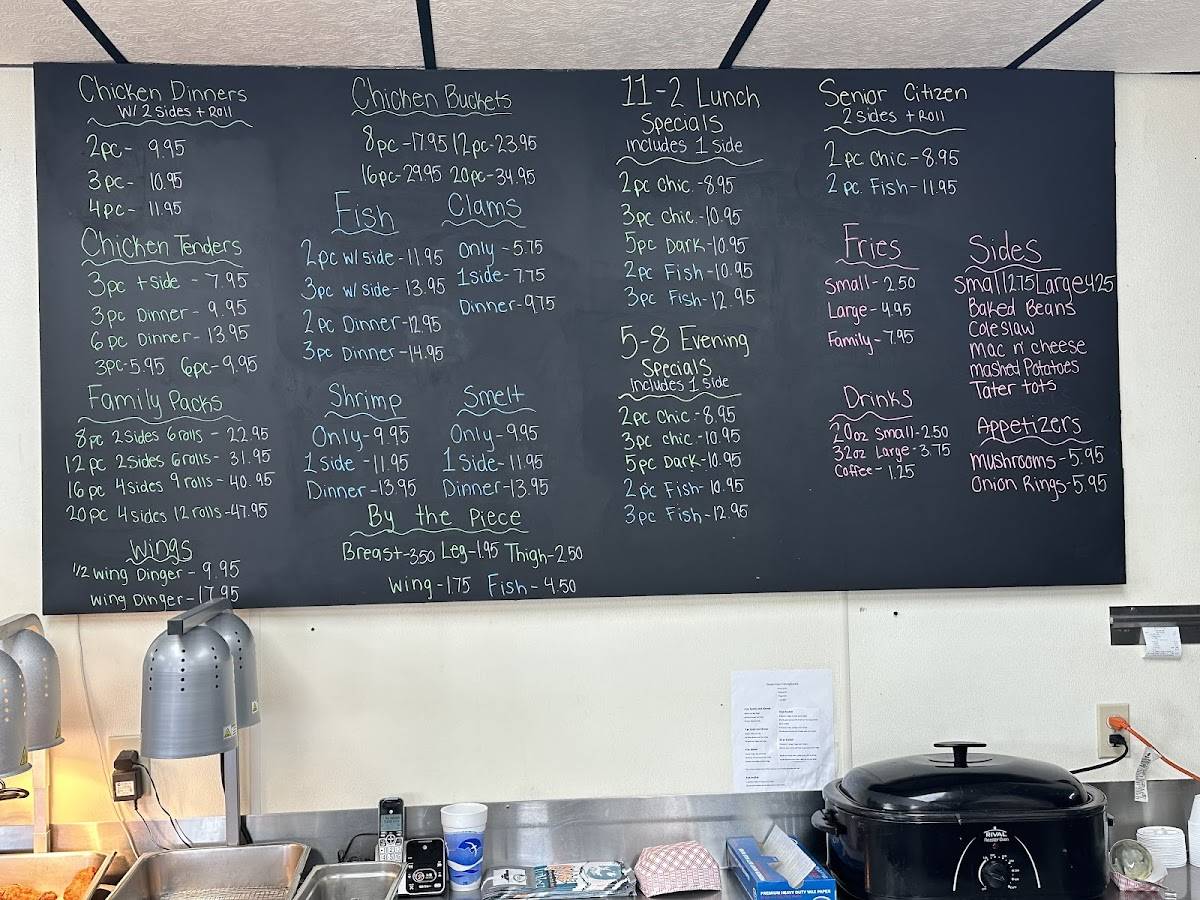 Chicken Dinners
W/ 2 Sides + Roll
2pc- 9.95
3pc- 10.95
4pc- 11.95
Chicken Tenders
3pc + side - 7.95
3pc Dinner - 9.95
6pc Dinner - 13.95
3pc-5.95 6pc-9.95
Family Packs
8pc 2sides 6rolls - 22.95
12pc 2sides 6rolls- 31.95
16pc 4sides 9rolls - 40.95
20pc 4sides 12rolls-47.95
Wings
1/2 wing Dinger - 9.95
wing Dinger-17.95
Chicken Buckets
8pc -17.95 12pc-23.95
16pc-29.95 20pc-34.95
Fish
2pc w/side-11.95
3pc w/side- 13.95
2pc Dinner-12.95
3pc Dinner-14.95
Clams
Only -5.75
1side-7.75
Dinner-9.75
Shrimp
Only-9.95
1side -11.95
Dinner-13.95
Smelt
Only-9.95
1Side-11.95
Dinner-13.95
By the Piece
Breast-3.50 Leg-1.95 Thigh-2.50
Wing-1.75 Fish-4.50
11-2 Lunch
Specials
includes 1 side
2pc chic.-8.95
3pc chic.-10.95
5pc Dark-10.95
2pc Fish-10.95
3pc Fish-12.95
5-8 Evening
Specials
includes 1 side
2pc chic.-8.95
3pc chic.-10.95
5pc Dark-10.95
2pc Fish- 10.95
3pc Fish-12.95
Senior Citizen
2sides + Roll
2pc Chic.-8.95
2pc. Fish-11.95
Fries
Small- 2.50
Large-4.95
Family-7.95
Drinks
20oz Small-2.50
32oz Large-3.75
Coffee-1.25
Sides
Small 2.75 Large 4.25
Baked Beans
Coleslaw
mac n' cheese
mashed Potatoes
Tater tots
Appetizers
mushrooms-5.95
Onion Rings-5.95
RIVAL
Roaster Oven
PREMIUM HEAVY DUTY WAX PAPER